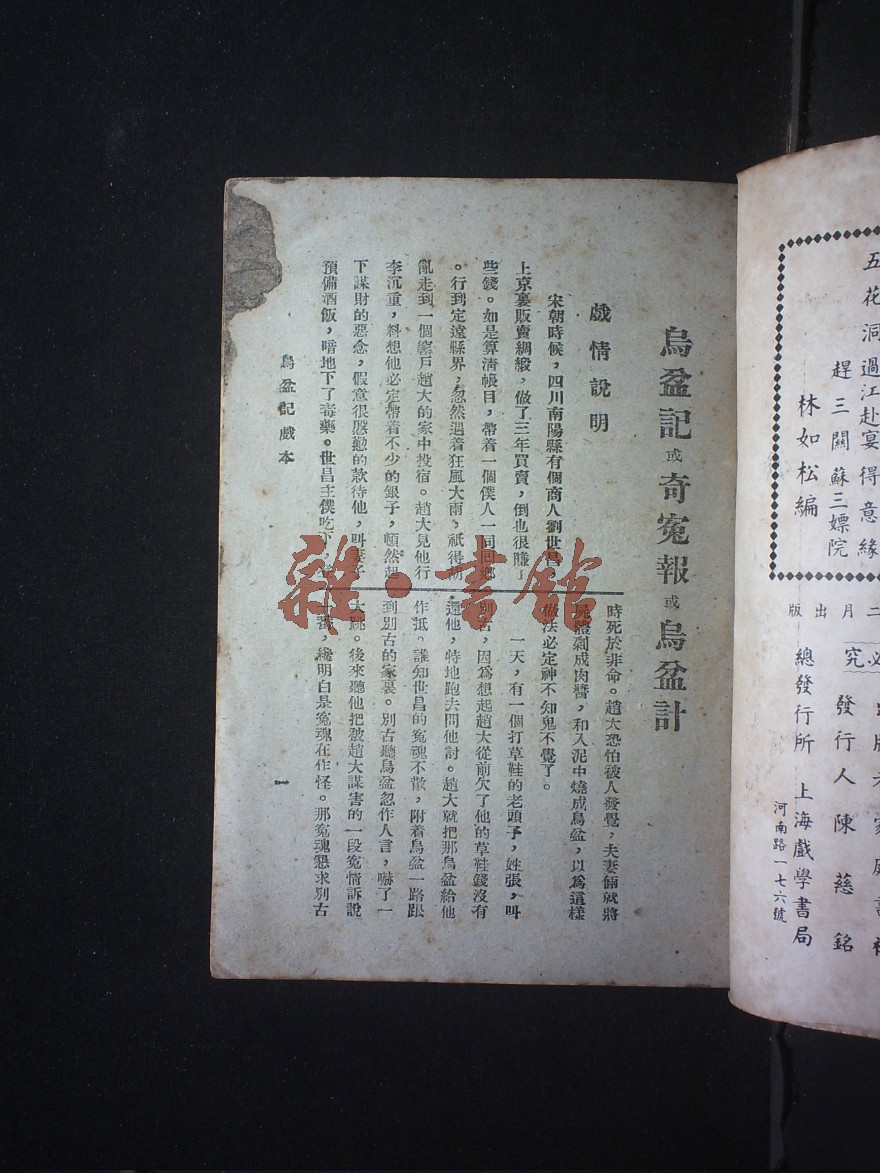 五花洞過江赴宴得意緣
趕三關蘇三嫖院
林如松編
二月出版
必究
發行人陳慈銘
總發行所上海戲學書局
河南路一七六號
烏盆記或奇冤報或烏盆計
戲情說明
宋朝時候，四川南陽縣有個商人劉世昌
上京裏販賣綢緞，做了三年買賣，倒也很賺了
些錢。如是算清帳目，帶着一個僕人一同回鄉
。行到定遠縣界，忽然遇着狂風大雨，祇得胡
亂走到一個窰戶趙大的家中投宿。趙大見他行
李沉重，料想他必定帶着不少的銀子，頓然起
下謀財的惡念，假意很慇懃的欵待他，叫妻子
預備酒飯，暗地下了毒藥。世昌主僕吃下，
時死於非命。趙大恐怕被人發覺，夫妻倆就將
屍體剁成肉醬，和入泥中燒成烏盆，以爲這樣
做法必定神不知鬼不覺了。
一天，有一個打草鞋的老頭子，姓張，叫
別古，因爲想起趙大從前欠了他的草鞋錢沒有
還他，特地跑去問他討。趙大就把那烏盆給他
作抵。誰知世昌的冤魂不散，附着烏盆一路跟
到別古的家裏。別古聽烏盆忽作人言，嚇了一
大跳。後來聽他把被趙大謀害的一段冤情訴說
一番，纔明白是冤魂在作怪。那冤魂懇求別古
烏盆記戲本
一
雜·書館